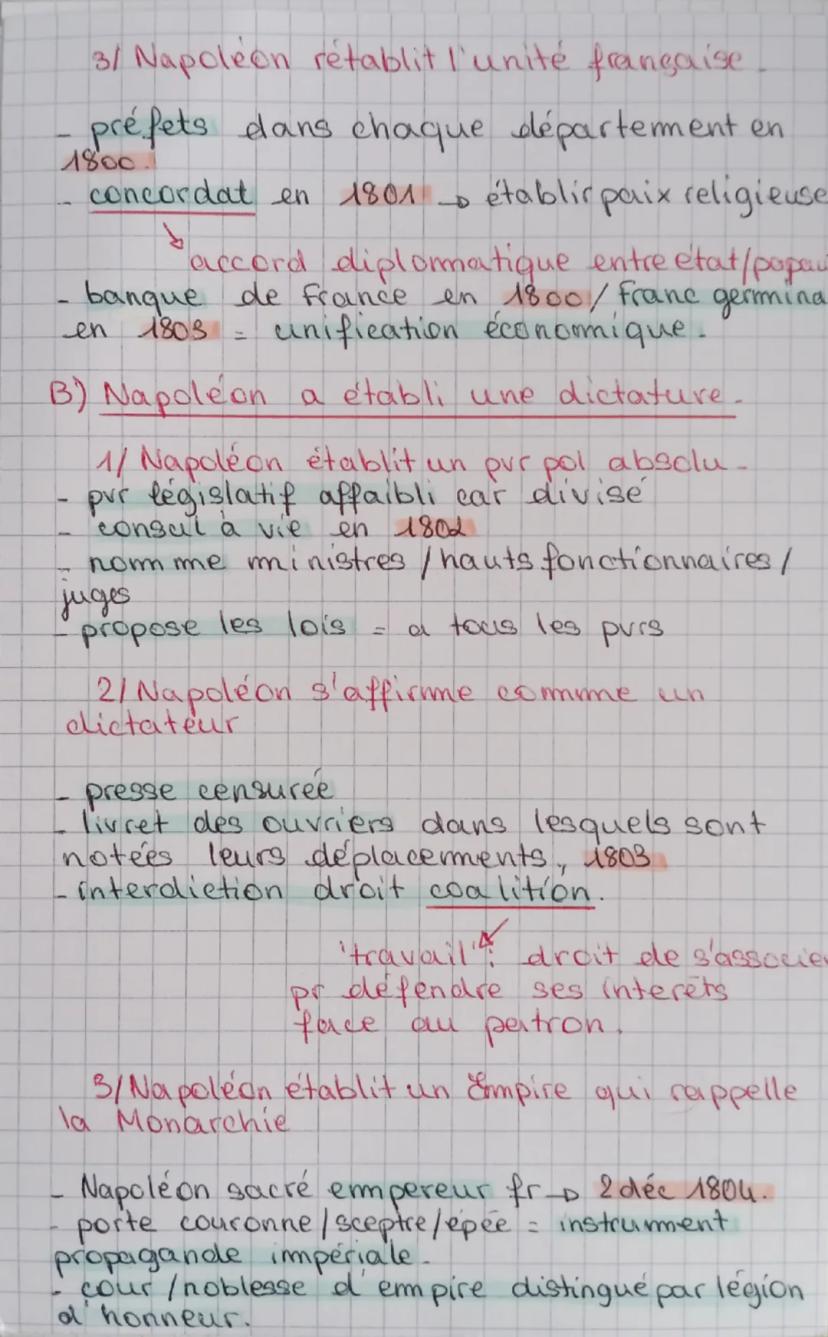 3/ Napoléon rétablit l'unité française.
- préfets dans chaque département en
1800.
- concordat en 1801 → établir paix religieuse
↳ accord diplomatique entre état/papau
- banque de France en 1800 / Franc germina
en 1803 = unification économique.
B) Napoléon a établi une dictature.
1/ Napoléon établit un pvr pol absolu.
- pvr législatif affaibli car divisé
- consul à vie en 1802
- nomme ministres / hauts fonctionnaires /
juges
- propose les lois = a tous les pvrs
2/ Napoléon s'affirme comme un
dictateur
- presse censurée
- livret des ouvriers dans lesquels sont
notées leurs déplacements, 1803
- interdiction droit coalition.
"travail": droit de s'associe
pr défendre ses interêts
face au patron.
3/ Napoléon établit un Empire qui rappelle
la Monarchie
- Napoléon sacré empereur fr → 2 déc 1804.
- porte couronne / sceptre / épée = instrument
propagande impériale.
- cour / noblesse d'empire distingué par légion
d'honneur.